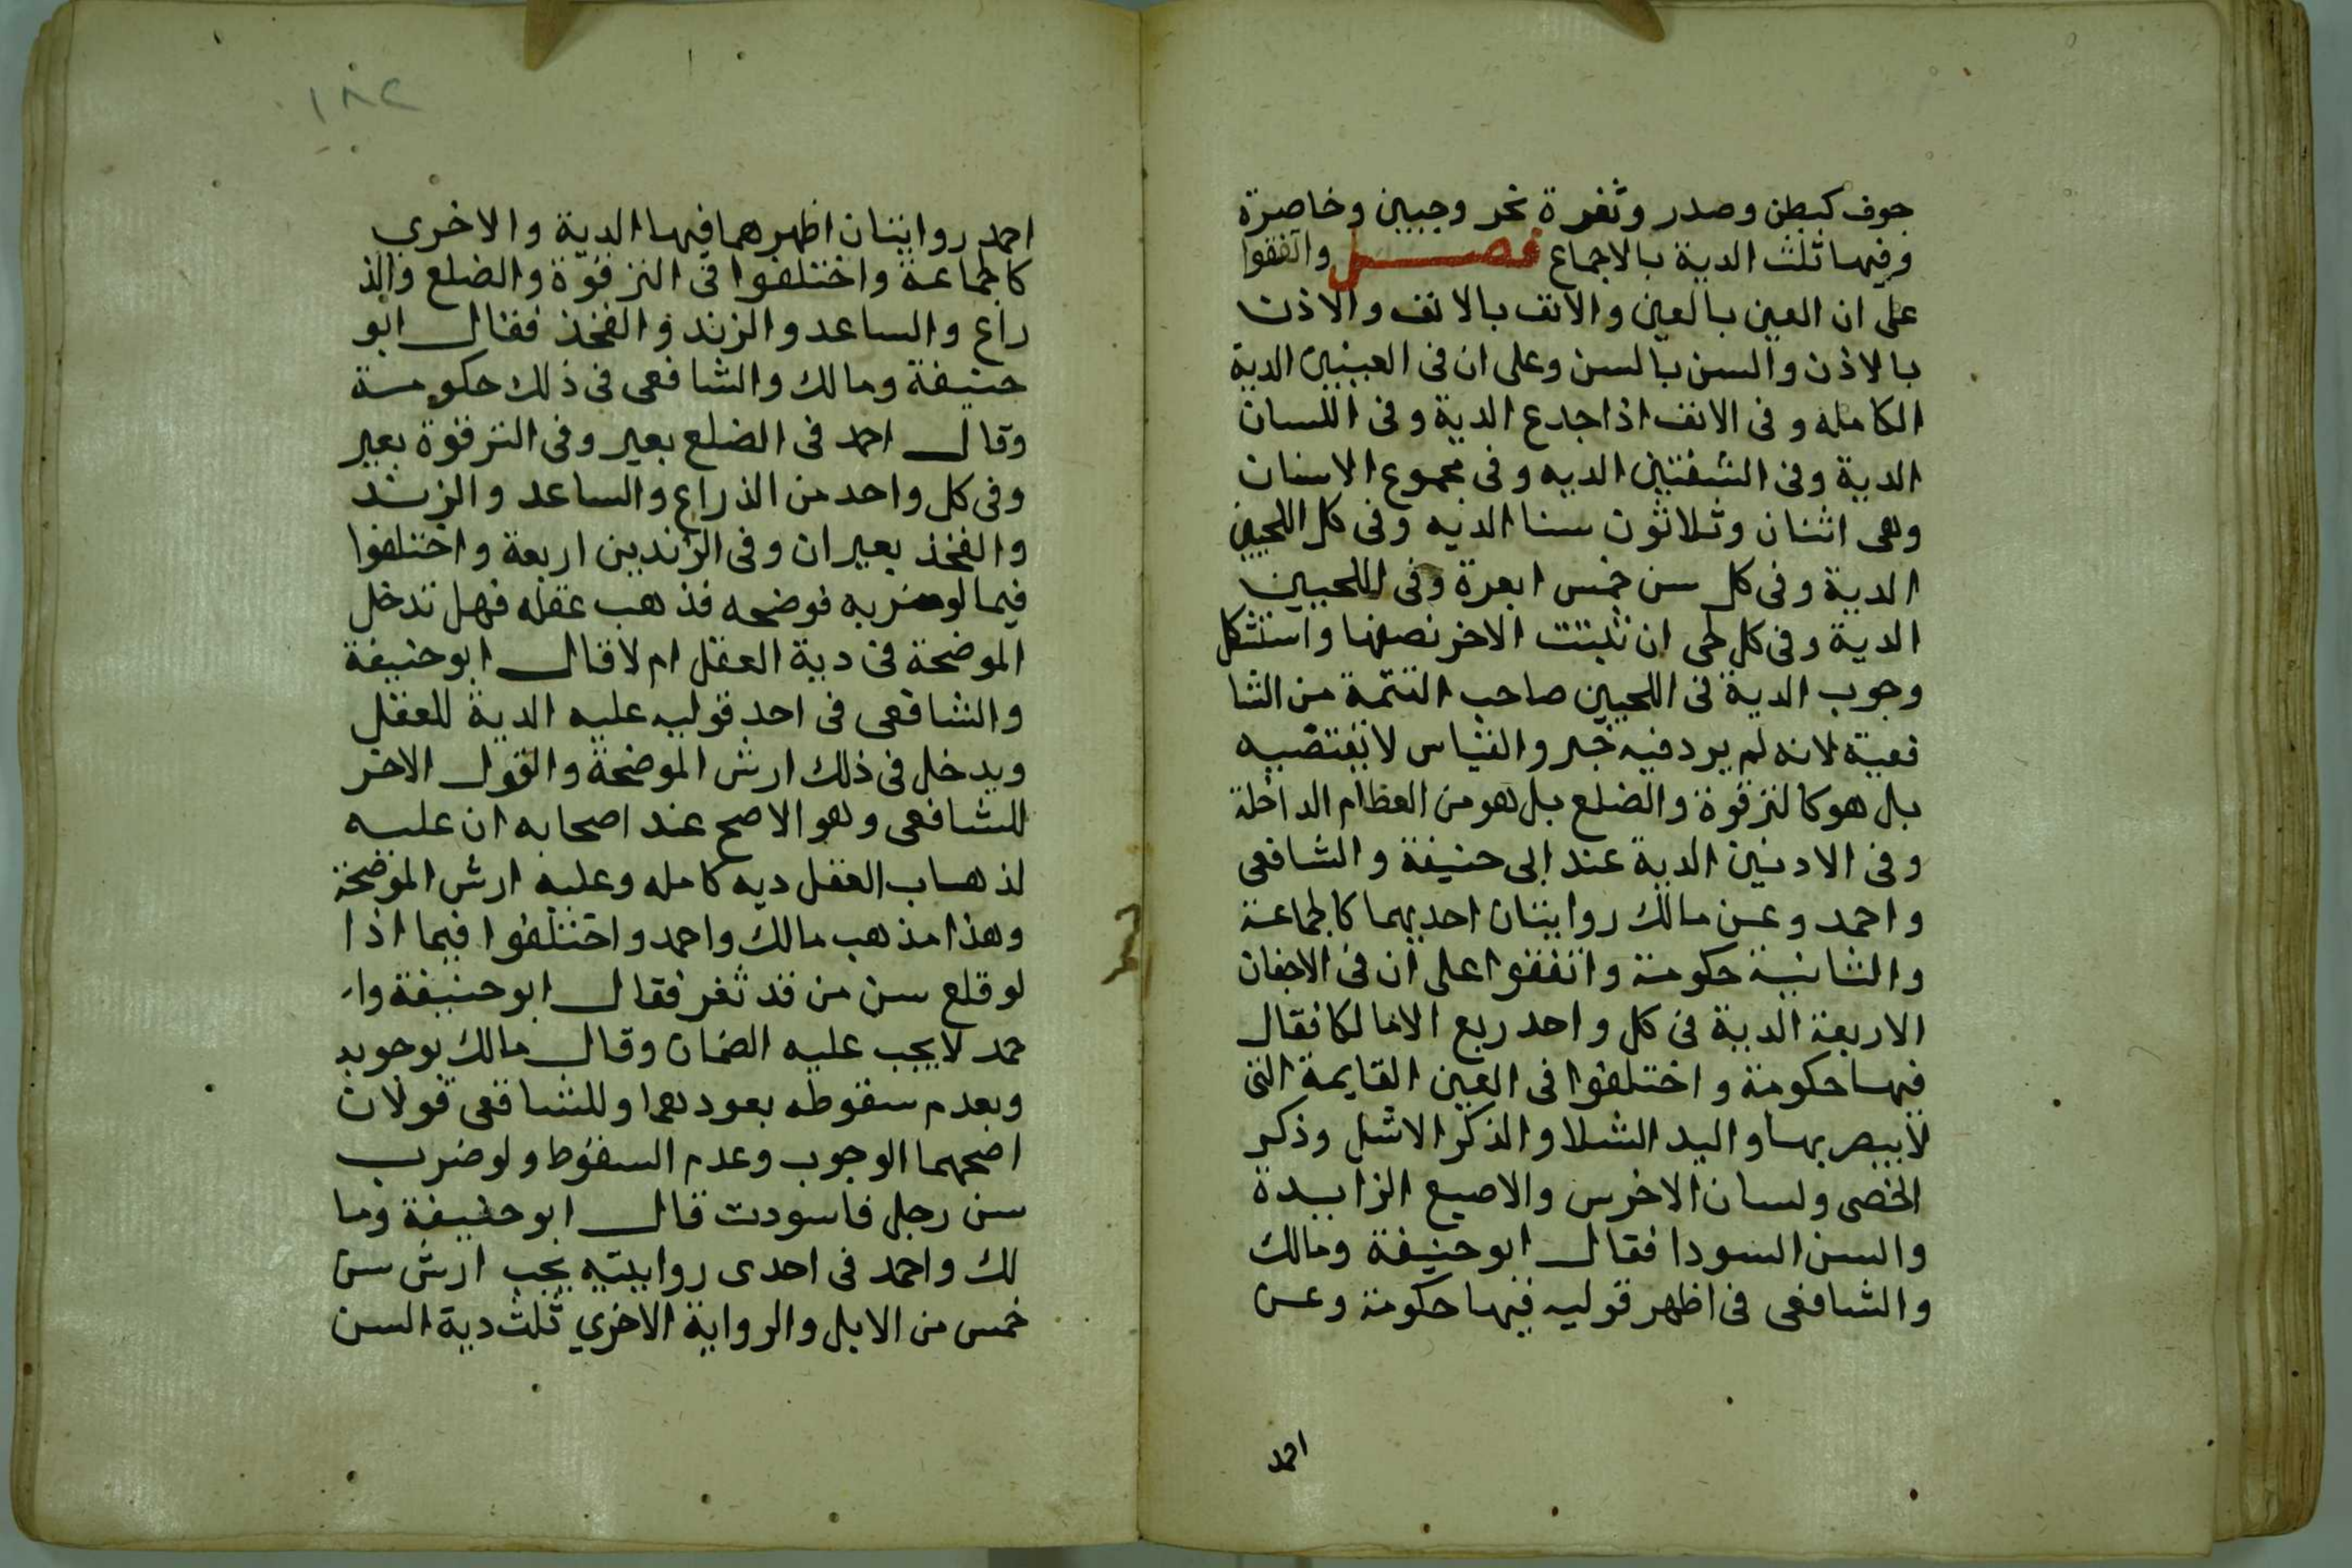 جوف كبطن وصدر وثغرة نحر وجبين وخاصرة
وفيها ثلث الدية بالاجماع فصل واتفقوا
على ان العين بالعين والانف بالانف والاذن
بالاذن والسن بالسن وعلى ان فى العينين الدية
الكامله وفى الانف اذا جدع الدية وفى اللسان
الدية وفى الشفتين الديه وفى مجموع الاسنان
وهى اثنان وثلاثون سنا الديه وفى كل اللحيين
الدية وفى كل سن خمس ابعرة وفى اللحيين
الدية وفى كل لحى ان ثبتت الاخر نصفها واستشكل
وجوب الدية فى اللحيين صاحب التتمة من الشا
فعية لانه لم يرد فيه خبر والقياس لا يقتضيه
بل هو كالترقوة والضلع بل هو من العظام الداخلة
وفى الاذنين الدية عند ابى حنيفة والشافعى
واحمد وعن مالك روايتان احديهما كالجماعة
والثانية حكومة واتفقوا على ان فى الاجفان
الاربعة الدية فى كل واحد ربع الا مالكا فقال
فيها حكومة واختلفوا فى العين القايمة التى
لا يبصر بها واليد الشلا والذكر الاشل وذكر
الخصى ولسان الاخرس والاصبع الزايدة
والسن السودا فقال ابو حنيفة ومالك
والشافعى فى اظهر قوليه فيها حكومة وعن
احمد
١٨٢
احمد روايتان اظهرهما فيها الدية والاخري
كالجماعة واختلفوا فى الترقوة والضلع والذ
راع والساعد والزند والفخذ فقال ابو
حنيفة ومالك والشافعى فى ذلك حكومة
وقال احمد فى الضلع بعير وفى الترقوة بعير
وفى كل واحد من الذراع والساعد والزند
والفخذ بعيران وفى الزندين اربعة واختلفوا
فيما لو ضربه فوضحه فذهب عقله فهل تدخل
الموضحة فى دية العقل ام لا قال ابو حنيفة
والشافعى فى احد قوليه عليه الدية للعقل
ويدخل فى ذلك ارش الموضحة والقول الاخر
للشافعى وهو الاصح عند اصحابه ان عليه
لذهاب العقل ديه كامله وعليه ارش الموضحة
وهذا مذهب مالك واحمد واختلفوا فيما اذا
لو قلع سن من قد ثغر فقال ابو حنيفة وا
حمد لا يجب عليه الضمان وقال مالك بوجوبه
وبعدم سقوطه بعودها وللشافعى قولان
اصحهما الوجوب وعدم السقوط ولو ضرب
سن رجل فاسودت قال ابو حنيفة وما
لك واحمد فى احدى روايتيه يجب ارش سن
خمس من الابل والرواية الاخري ثلث دية السن